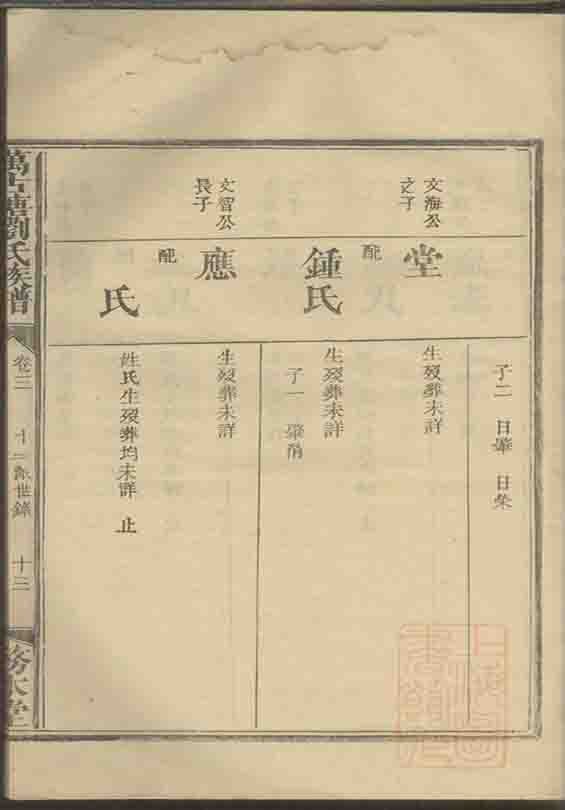 子二 日肇 日榮
文海公
之子
堂
生歿葬未詳
配
鍾氏
生歿葬未詳
子一 肇
文智公
長子
應
生歿葬未詳
配
氏
姓氏生歿葬均未詳 止
萬古塘劉氏族譜
卷三
十一派世錄
十三
務本堂
上海圖書館藏